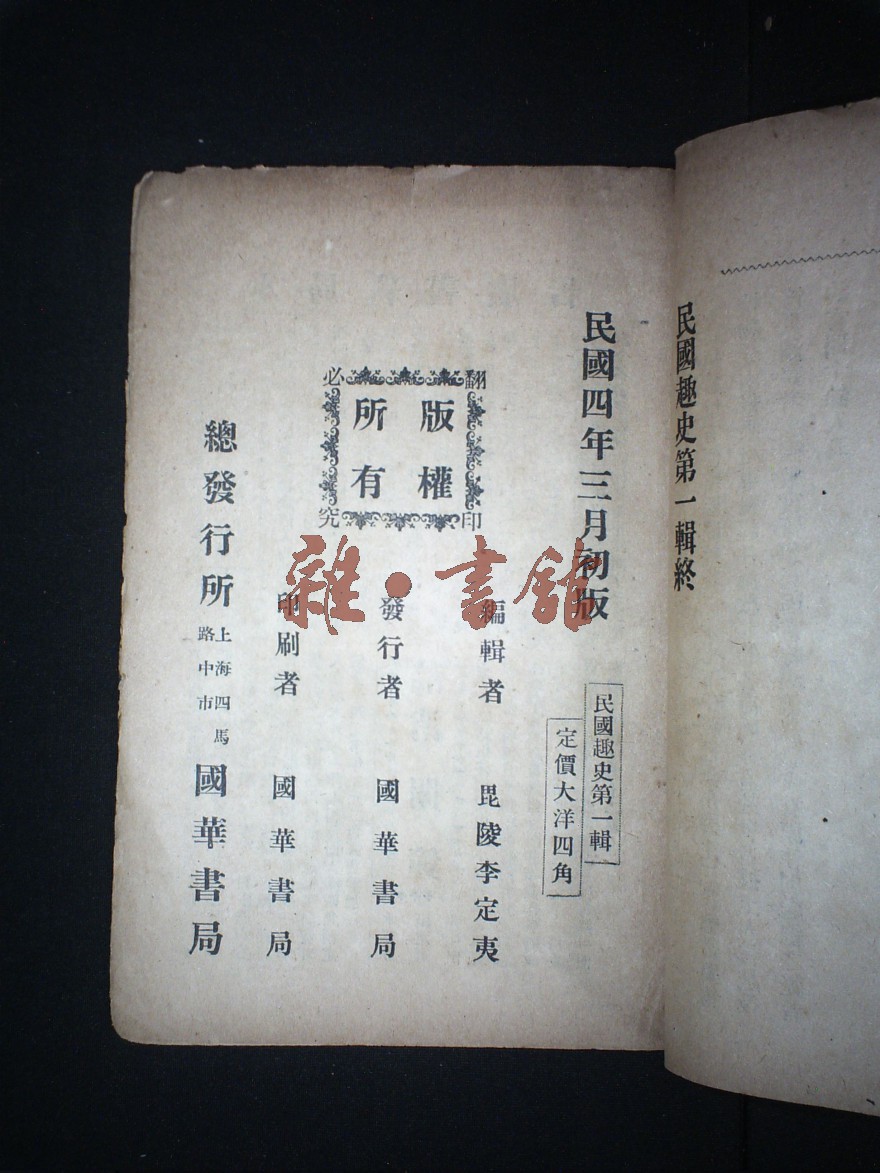 民國趣史第一輯終
民國四年三月初版
民國趣史第一輯
定價大洋四角
翻印必究
版權
所有
編輯者 毘陵李定夷
發行者 國華書局
印刷者 國華書局
總發行所 上海四馬
路中市 國華書局
雜·書館